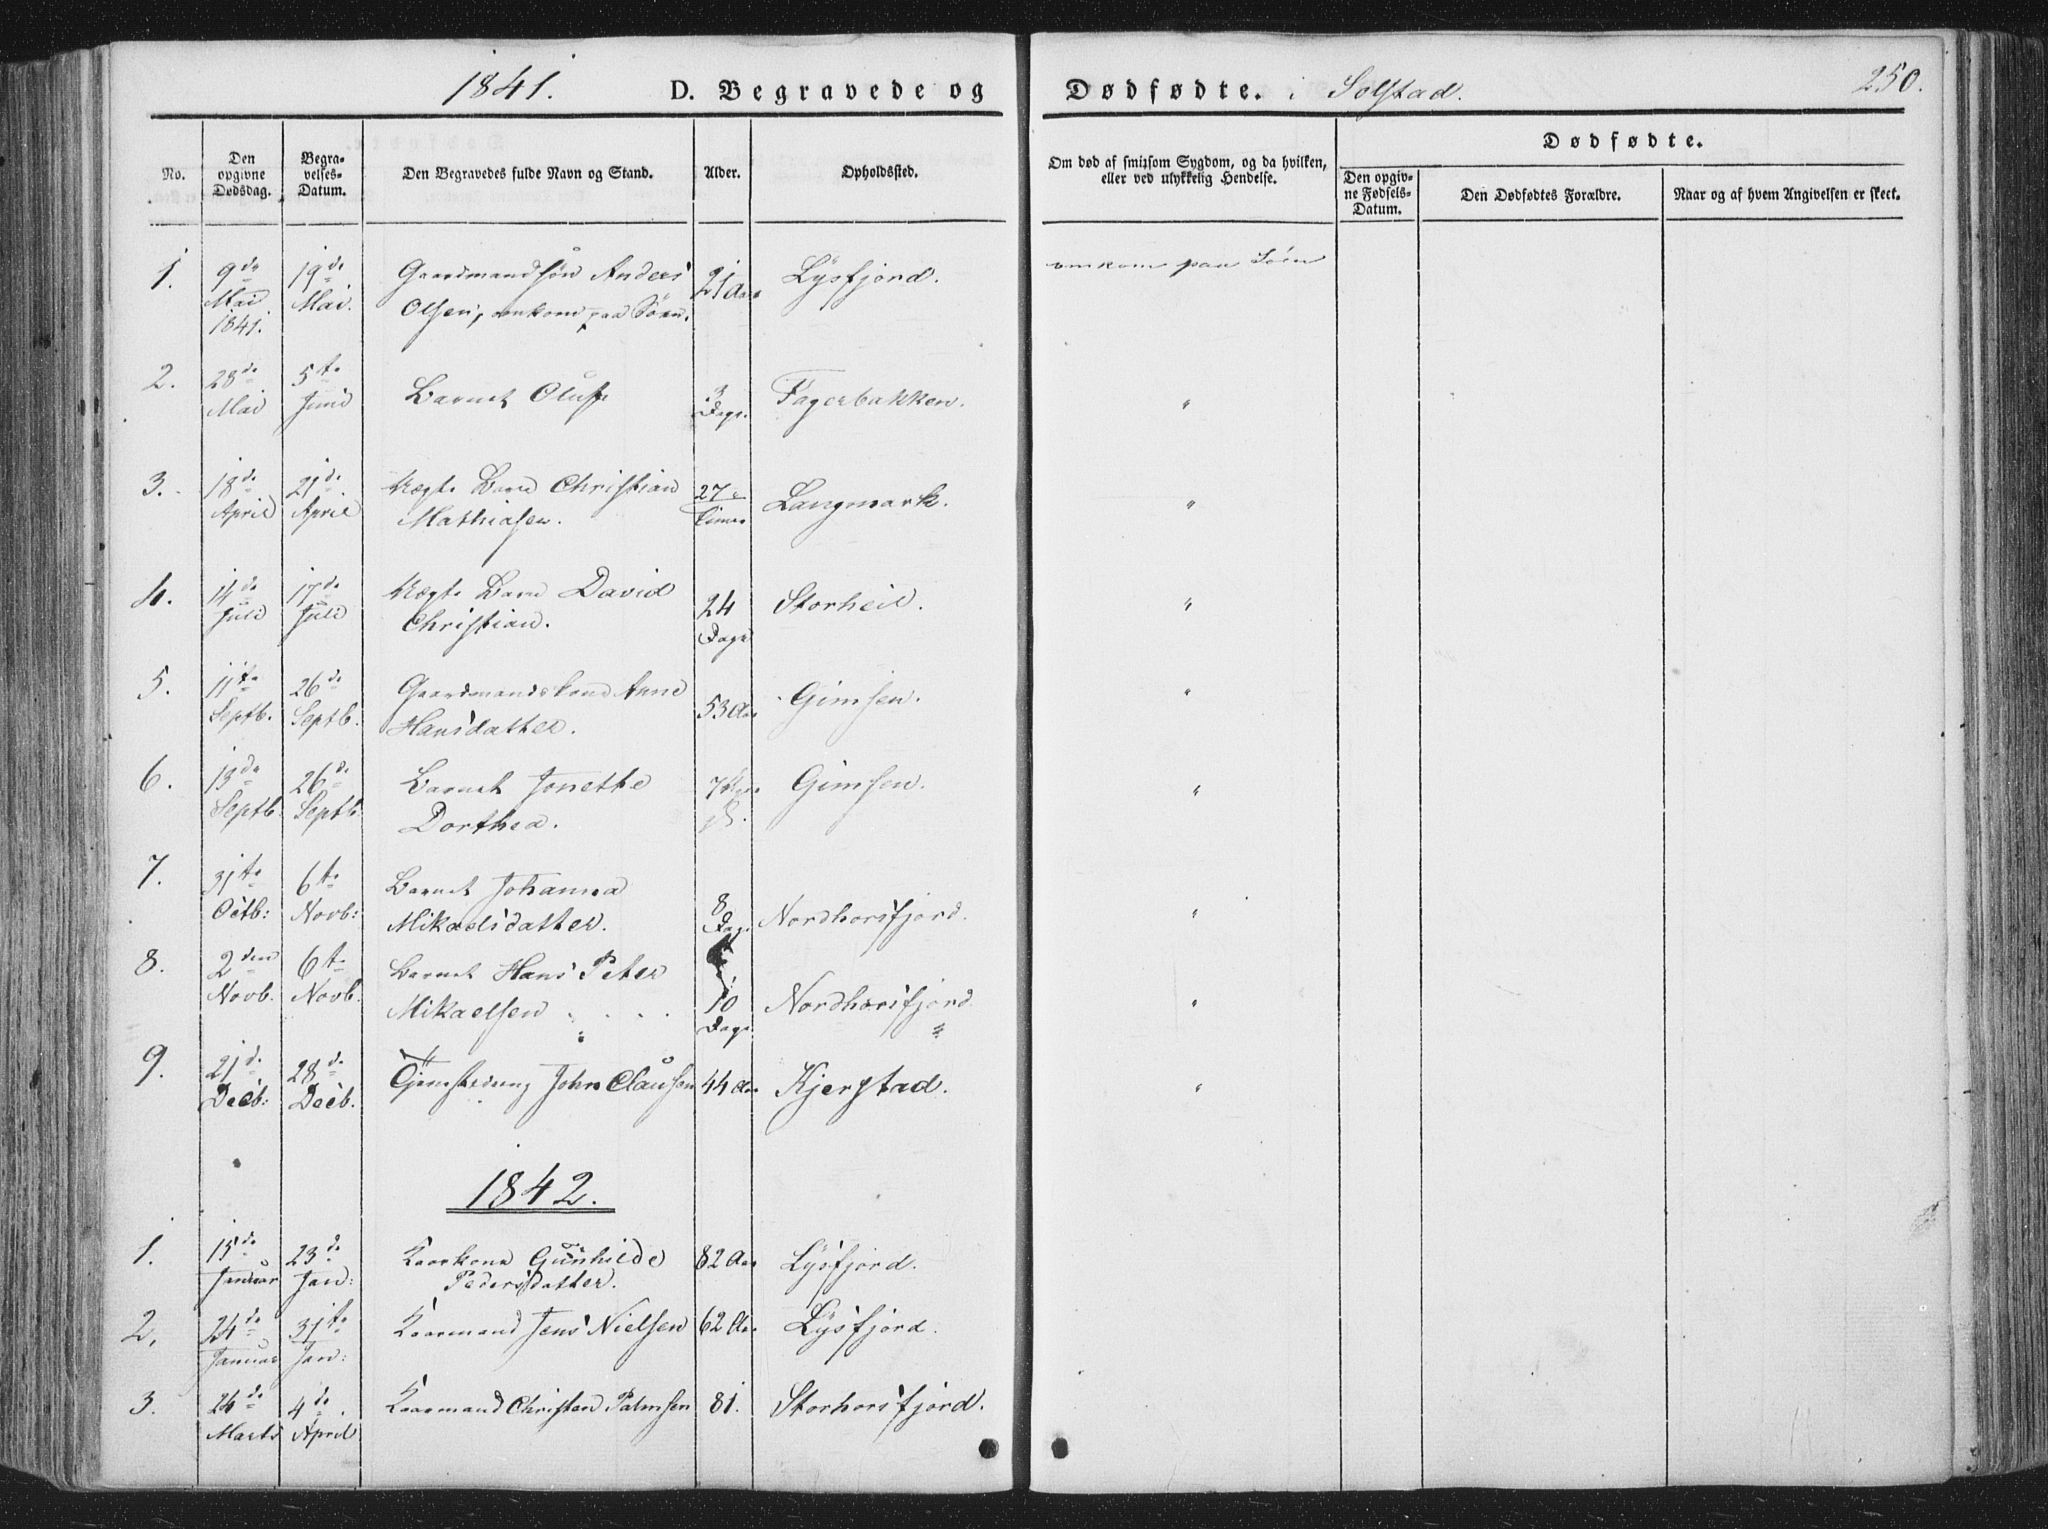 1841. D. Begravede og Dødfødte. i Solstad. 250.
No.
Den opgivne Dødsdag.
Begra-velses-Datum.
Den Begravedes fulde Navn og Stand.
Alder.
Opholdssted.
Om død af smitsom Sygdom, og da hvilken,
eller ved ulykkelig Hendelse.
Dødfødte.
Den opgiv-ne Fødsels-Datum.
Den Dødfødtes Forældre.
Naar og af hvem Angivelsen er skeet.
1. 9de 19de Gaardmandssøn Anders 21 Aar Lysfjord. omkom paa Søen
Mai Mai. Olsen, omkom paa Søen.
1841.
2. 28de 5te Barnet Oluf 3 Fagerbakken. "
Mai Juni Dage.
3. 18de 21de Uægte Barn Christian 27 Langmark. "
April April Mathiasen. Timer
4. 14de 17de Uægte Barn David 24 Storheil. "
Juli Juli Christian. Dage
5. 11te 26de Gaardmandskone Anne 53 Aar Gimsen. "
Septb. Septb. Hansdatter.
6. 13de 26de Barnet Jonette 7 Gimsen. "
Septb. Septb. Dorthea.
7. 31te 6te Barnet Johanna 8 Nordhorsfjord. "
Octb: Novb: Mikaelsdatter. Dage
8. 2den 6te Barnet Hans Peter 10 Nordhorsfjord "
Novb. Novb. Mikaelsen Dage
9. 21de 28de John Clausen 44 Aar Kjerstad. "
Decb: Decb.
1842.
1. 15de 23de Kaarkone Gunhilde 82 Aar Lysfjord.
Januar Jan: Pedersdatter.
2, 24de 31te Kaarmand Jens Nielsen 62 Aar Lysfjord.
Januar Jan:
3. 24de 4de Kaarmand Christen Palmsen 81. Storhorsfjord.
Marts April